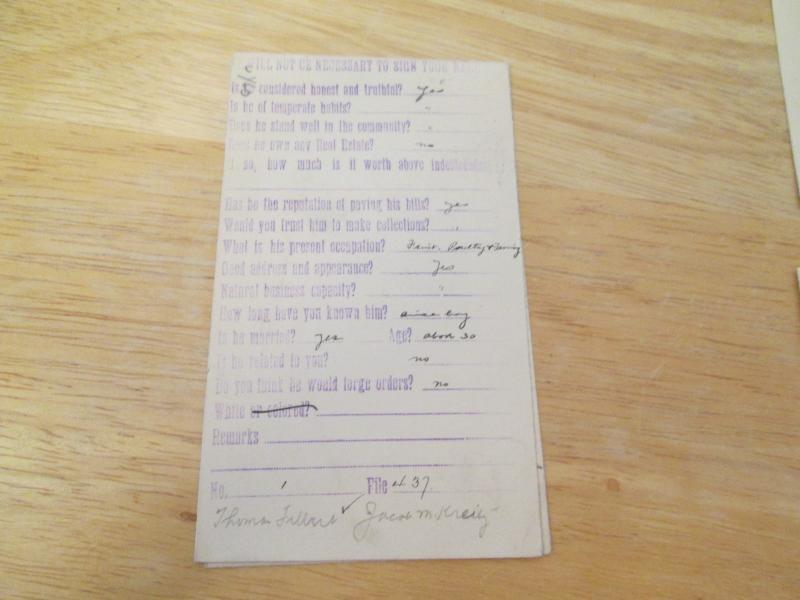 WILL NOT BE NECESSARY TO SIGN YOUR
Is he considered honest and truthful? yes
Is he of temperate habits? "
Does he stand well in the community? "
Does he own any Real Estate? no
If so, how much is it worth above indebtedness
Has he the reputation of paying his bills? yes
Would you trust him to make collections? "
What is his present occupation? Fruit, Poultry &
Good address and appearance? Yes
Natural business capacity? "
How long have you known him? since boy
Is he married? yes Age? about 30
Is he related to you? no
Do you think he would forge orders? no
White or colored?
Remarks
No. 1 File 37
Thomas Jacob M. Kreitz